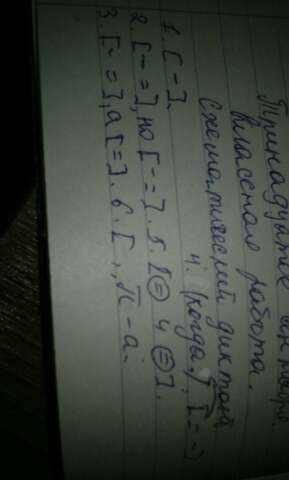 Тринадцатое января.
Классная работа.
Схематический диктант
1. [ – ]. 4. (когда
2. [ – = ], но [ – = ]. 5. [ ⊜ и ⊜ ].
3. [ – = ], а [ = ]. 6. [ „П – а.